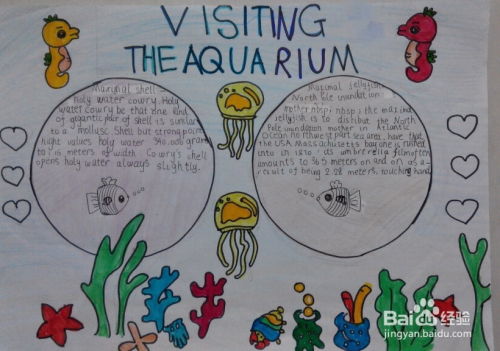 VISITING
THE AQUARIUM
Marginal shell
holy water cowry. Holy
water cowry be that one kind
of gigantic plar of shell is similar
to a mollusc Shell but strong pain
hight values holy water 340,000 gram
to 1.8 meters of width. Cowry's shell
opens holy water always slightly.
Maximal jellyfish
North Pole inundation
mother nbsp; nbsp; the maximal
jellyfish is to distribut the North
Pole inundation mother in Atlantic
Ocean Northwest part sea area, have that
the USA Massachusetts bay one is rushed
into in 1870 its umbrella film often
amounts to 36.5 meters on and on as a
result of being 2.28 meters, touching hand.
Baidu经验
jingyan.baidu.com